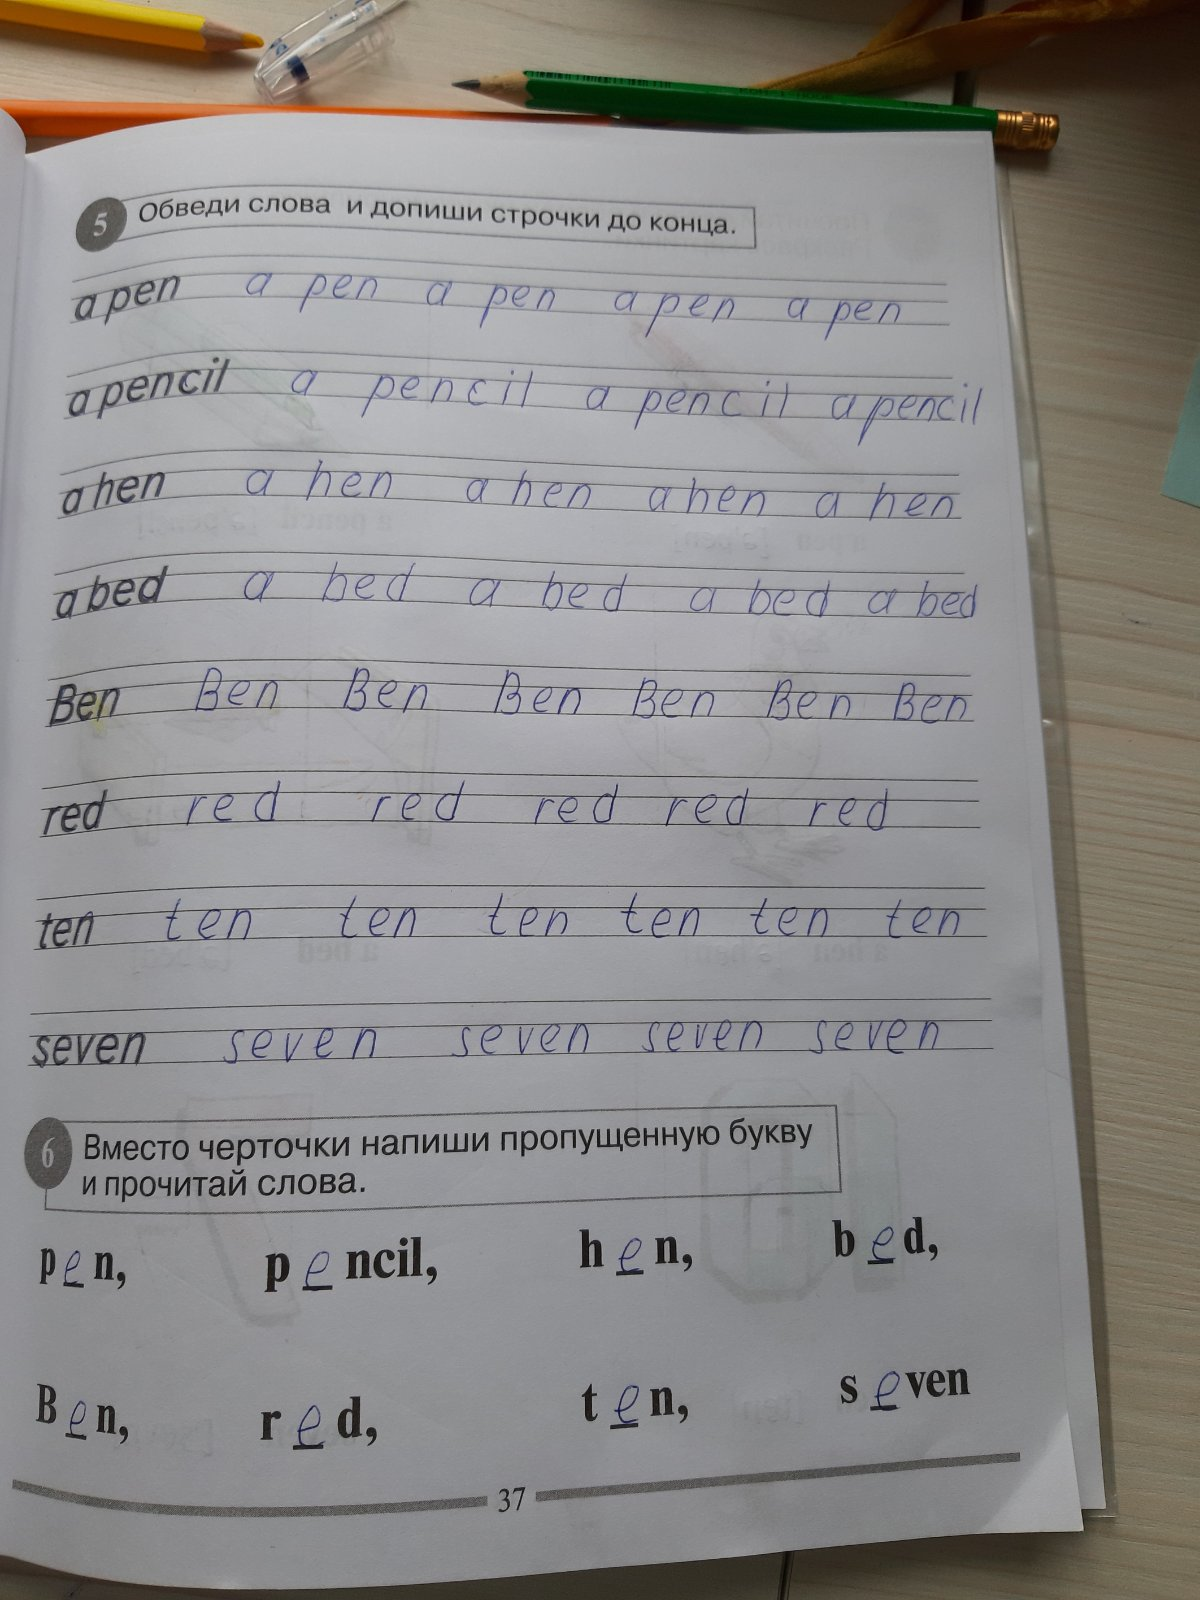 5 Обведи слова и допиши строчки до конца.
a pen a pen a pen a pen a pen
a pencil a pencil a pencil a pencil
a hen a hen a hen a hen a hen
a bed a bed a bed a bed a bed
Ben Ben Ben Ben Ben Ben Ben
red red red red red red
ten ten ten ten ten ten ten
seven seven seven seven seven
6 Вместо черточки напиши пропущенную букву
и прочитай слова.
pen, pencil, hen, bed,
Ben, red, ten, seven
37